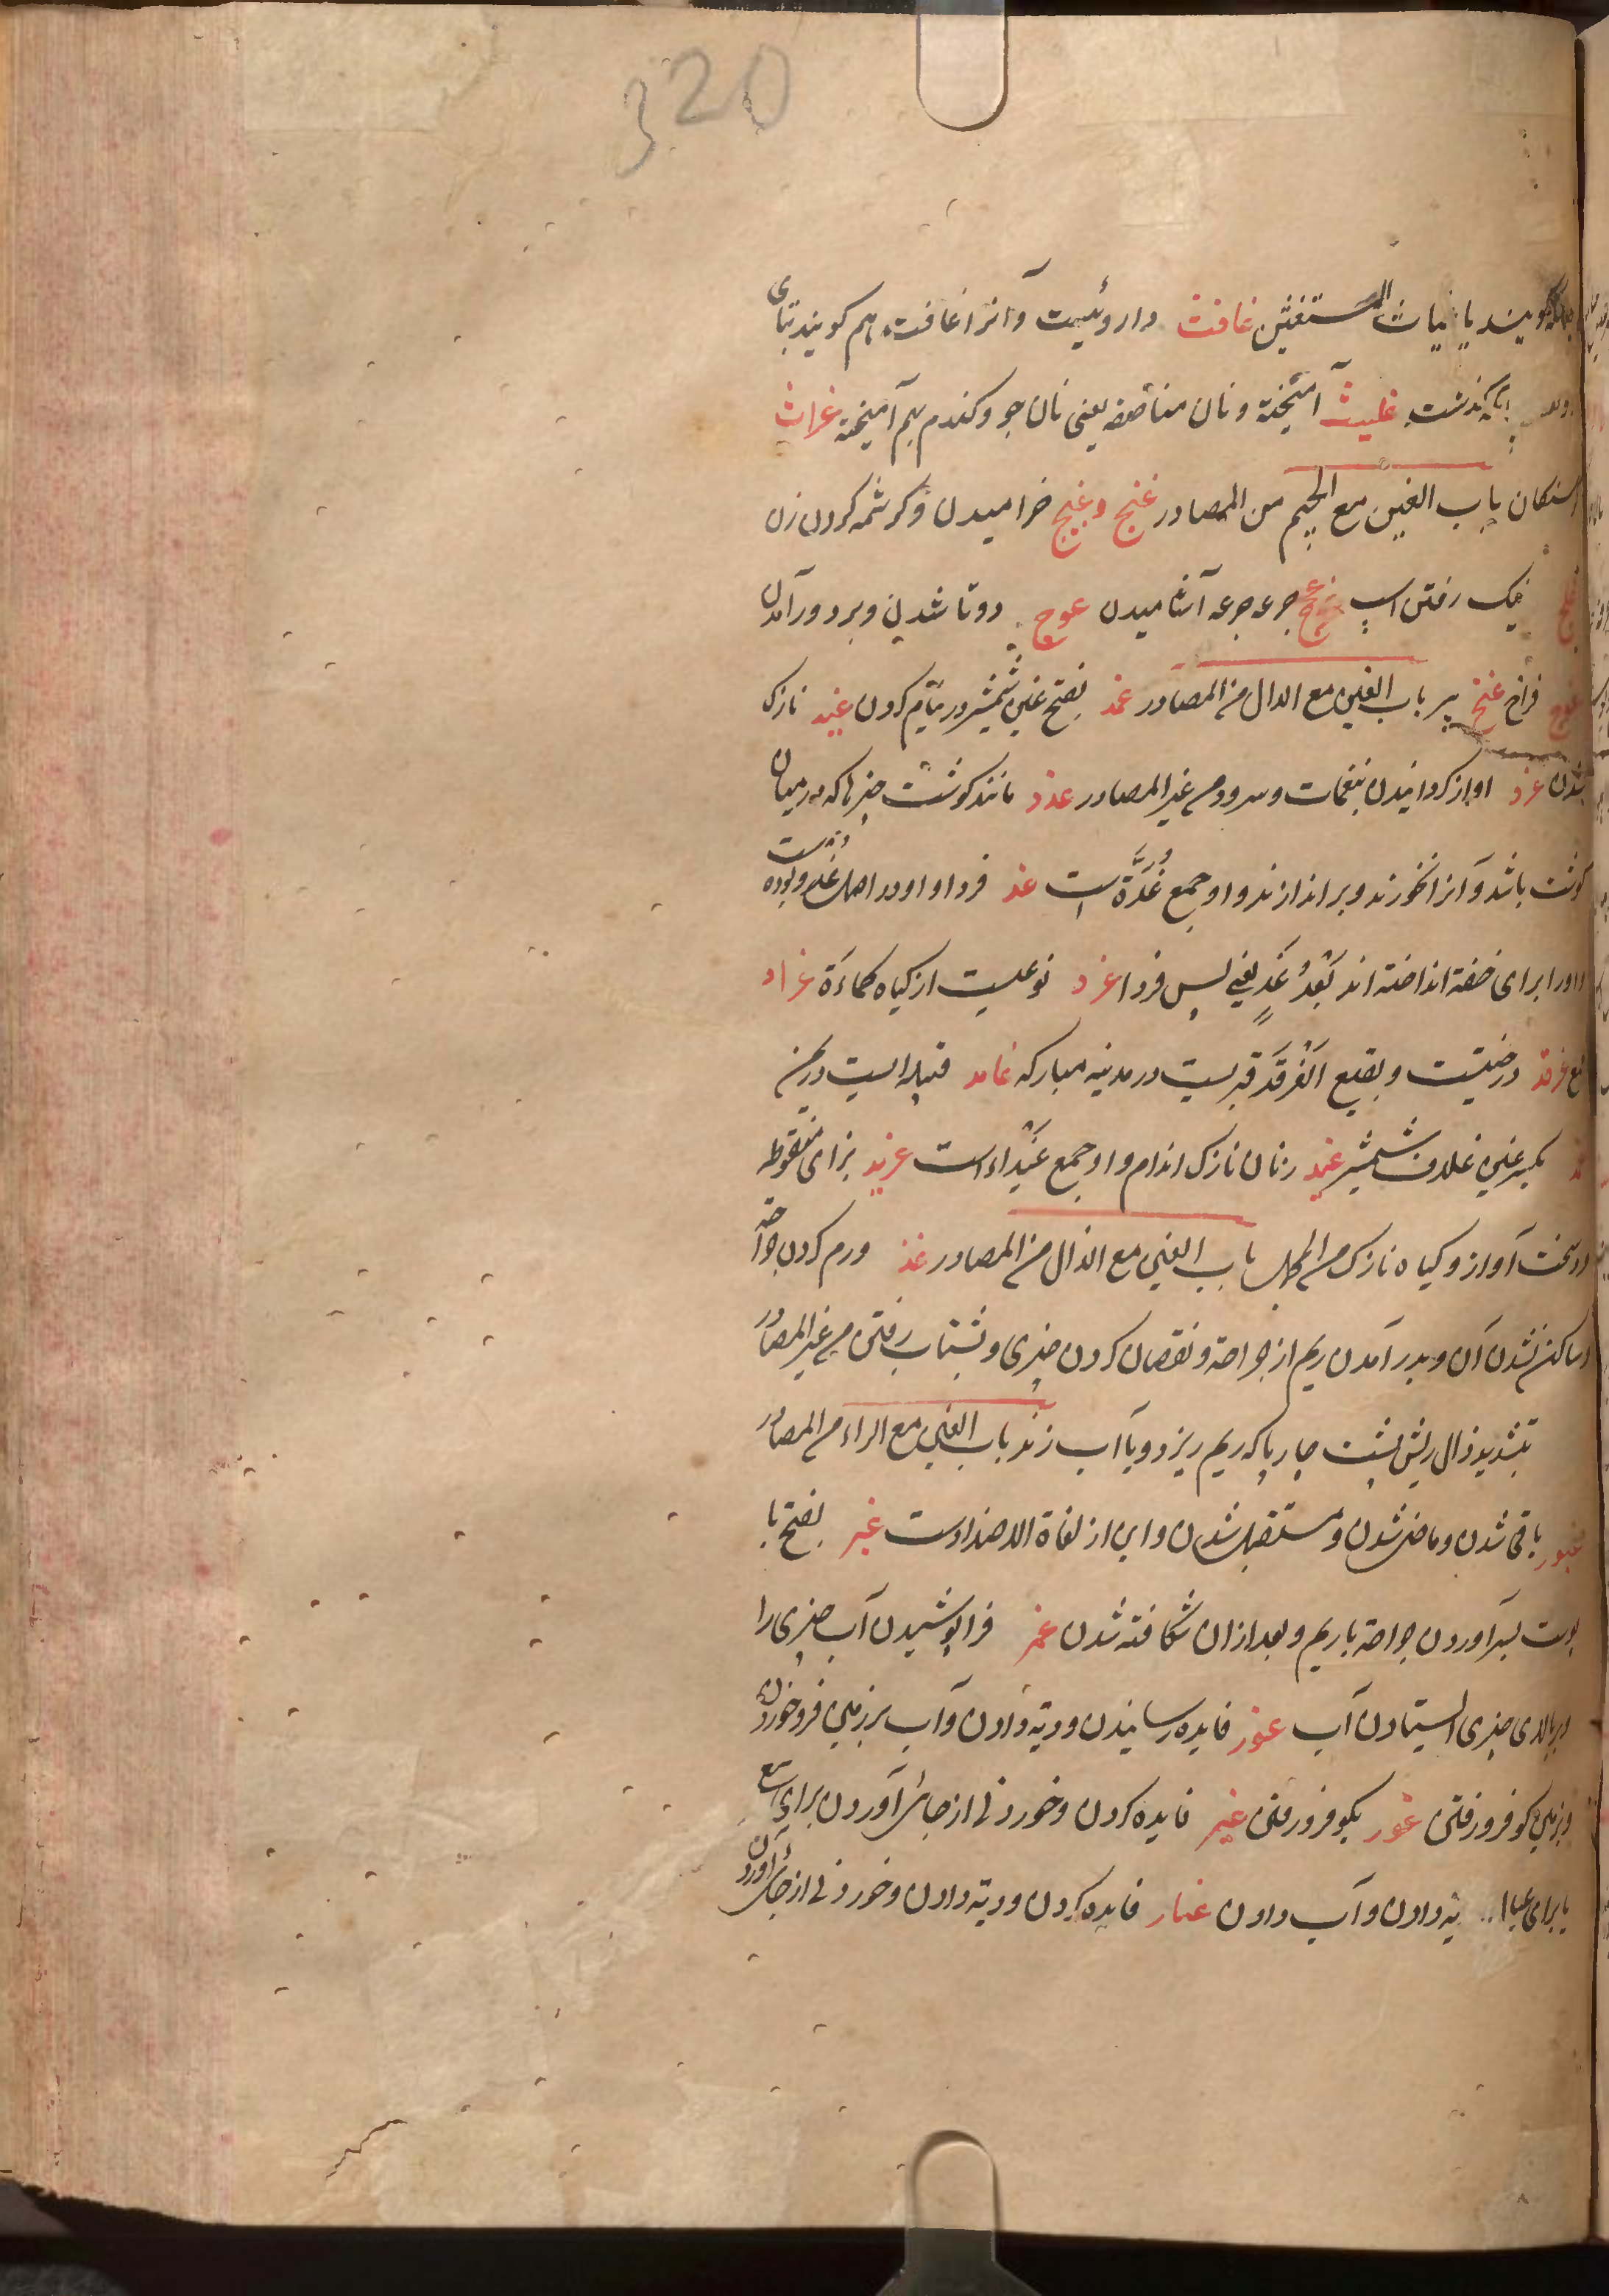 320
گویند یا غیاث المستغیثین غافث داروئیست و آنرا غافت هم گویند بتای
بگذشت غلیث آمیخته و نان مناصفه یعنی نان جو و کندم بهم آمیخته غراث
باب الغین مع الجیم من المصادر غنج و غنج خرامیدن و کرشمه کردن زن
نیک رفتن اسپ جرعه جرعه آشامیدن غوج دوتا شدن و بردو درآمدن
فراخ غنج پیر باب الغین مع الدال من المصادر غمد بفتح غین شمشیر در نیام کردن غید نازک
شدن غرد اواز کردانیدن بنغمات و سرود من غیر المصادر غدد مانند کوشت چیزها که درمیان
کوشت باشد و آنرا نخورند و براندازند و او جمع غُدَّة است غد فردا و او در اصل غدو بوده است
و اورا برای خفة انداخته اند بَعْدُ غَدٍ یعنی پس فردا غرد نوعیست از کیاه کماءة غراد
غرقد درختیست و بقیع الغَرقَد قبریست در مدینه مبارکه غامد قبیله ایست در یمن
بکسر غین غلاف شمشیر غید زنان نازک اندام و او جمع غَیْداء است غرید بزای منقوطه
سخت آواز و کیاه نازک من المجمل باب الغین مع الذال من المصادر غذ ورم کردن جراحه
و ساکن نشدن آن و بدر آمدن ریم از جراحه و نقصان کردن چیزی و بشتاب رفتن من غیر المصادر
بتشدید ذال ریش پشت چارپا که ریم ریزد و یا آب زند باب الغین مع الراء من المصادر
غبور باقی شدن و ماضی شدن و مستقبل شدن و این از لغاة الاضدادست غبر بفتح با
پوست بسر آوردن جراحه با ریم و بعد ازان شکافته شدن غمر فراپوشیدن آب چیزی را
و ببالای چیزی ایستادن آب غور فایده رسانیدن و دیة دادن و آب بر زمین فرو خوردن
و بزمین کو فرو رفتن غور بکو فرو رفتن غیر فایده کردن و خوردنی از جائی آوردن برای بیع
یا برای عیا دادن و آب دادن غیار فایده کردن و دیة دادن و خوردنی از جائی آوردن